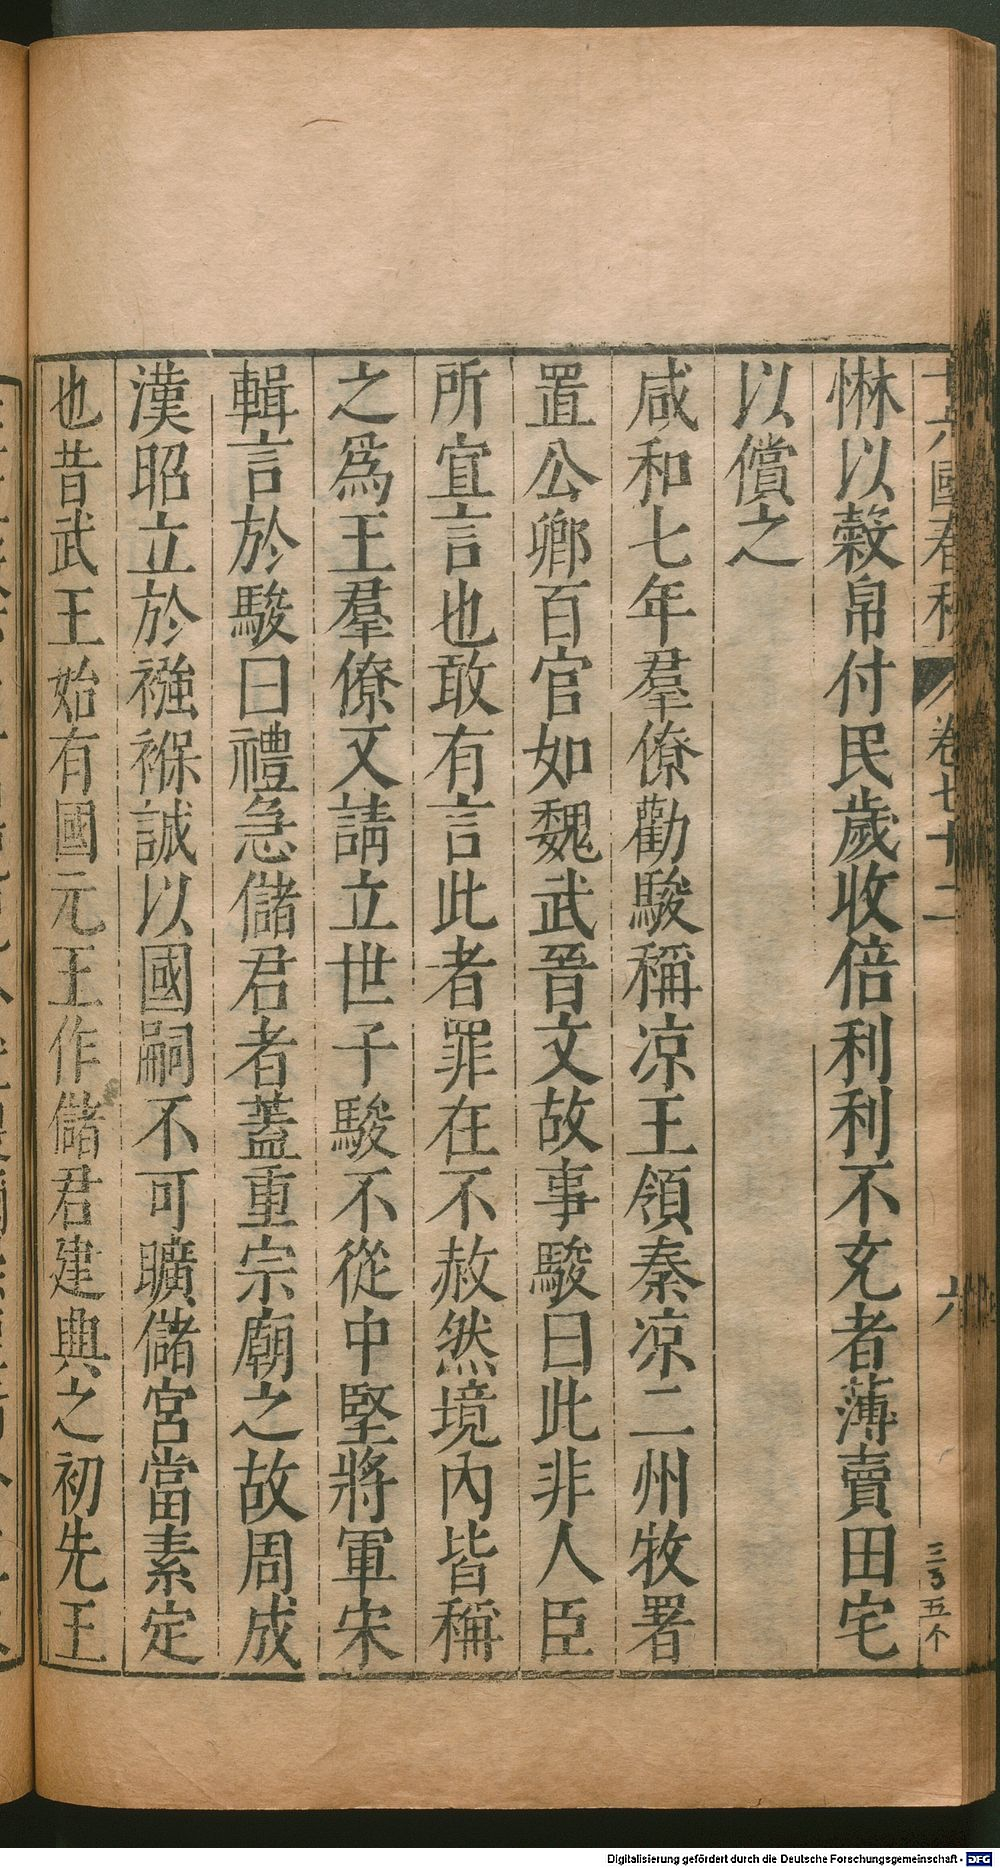 十六國春秋 卷七十二 六 三百五个
惏以穀帛付民歲收倍利利不充者薄賣田宅
以償之
咸和七年羣僚勸駿稱凉王領秦凉二州牧署
置公卿百官如魏武晉文故事駿曰此非人臣
所宜言也敢有言此者罪在不赦然境內皆稱
之爲王羣僚又請立世子駿不從中堅將軍宋
輯言於駿曰禮急儲君者蓋重宗廟之故周成
漢昭立於襁褓誠以國嗣不可曠儲宮當素定
也昔武王始有國元王作儲君建興之初先王
Digitalisierung gefördert durch die Deutsche Forschungsgemeinschaft - DFG